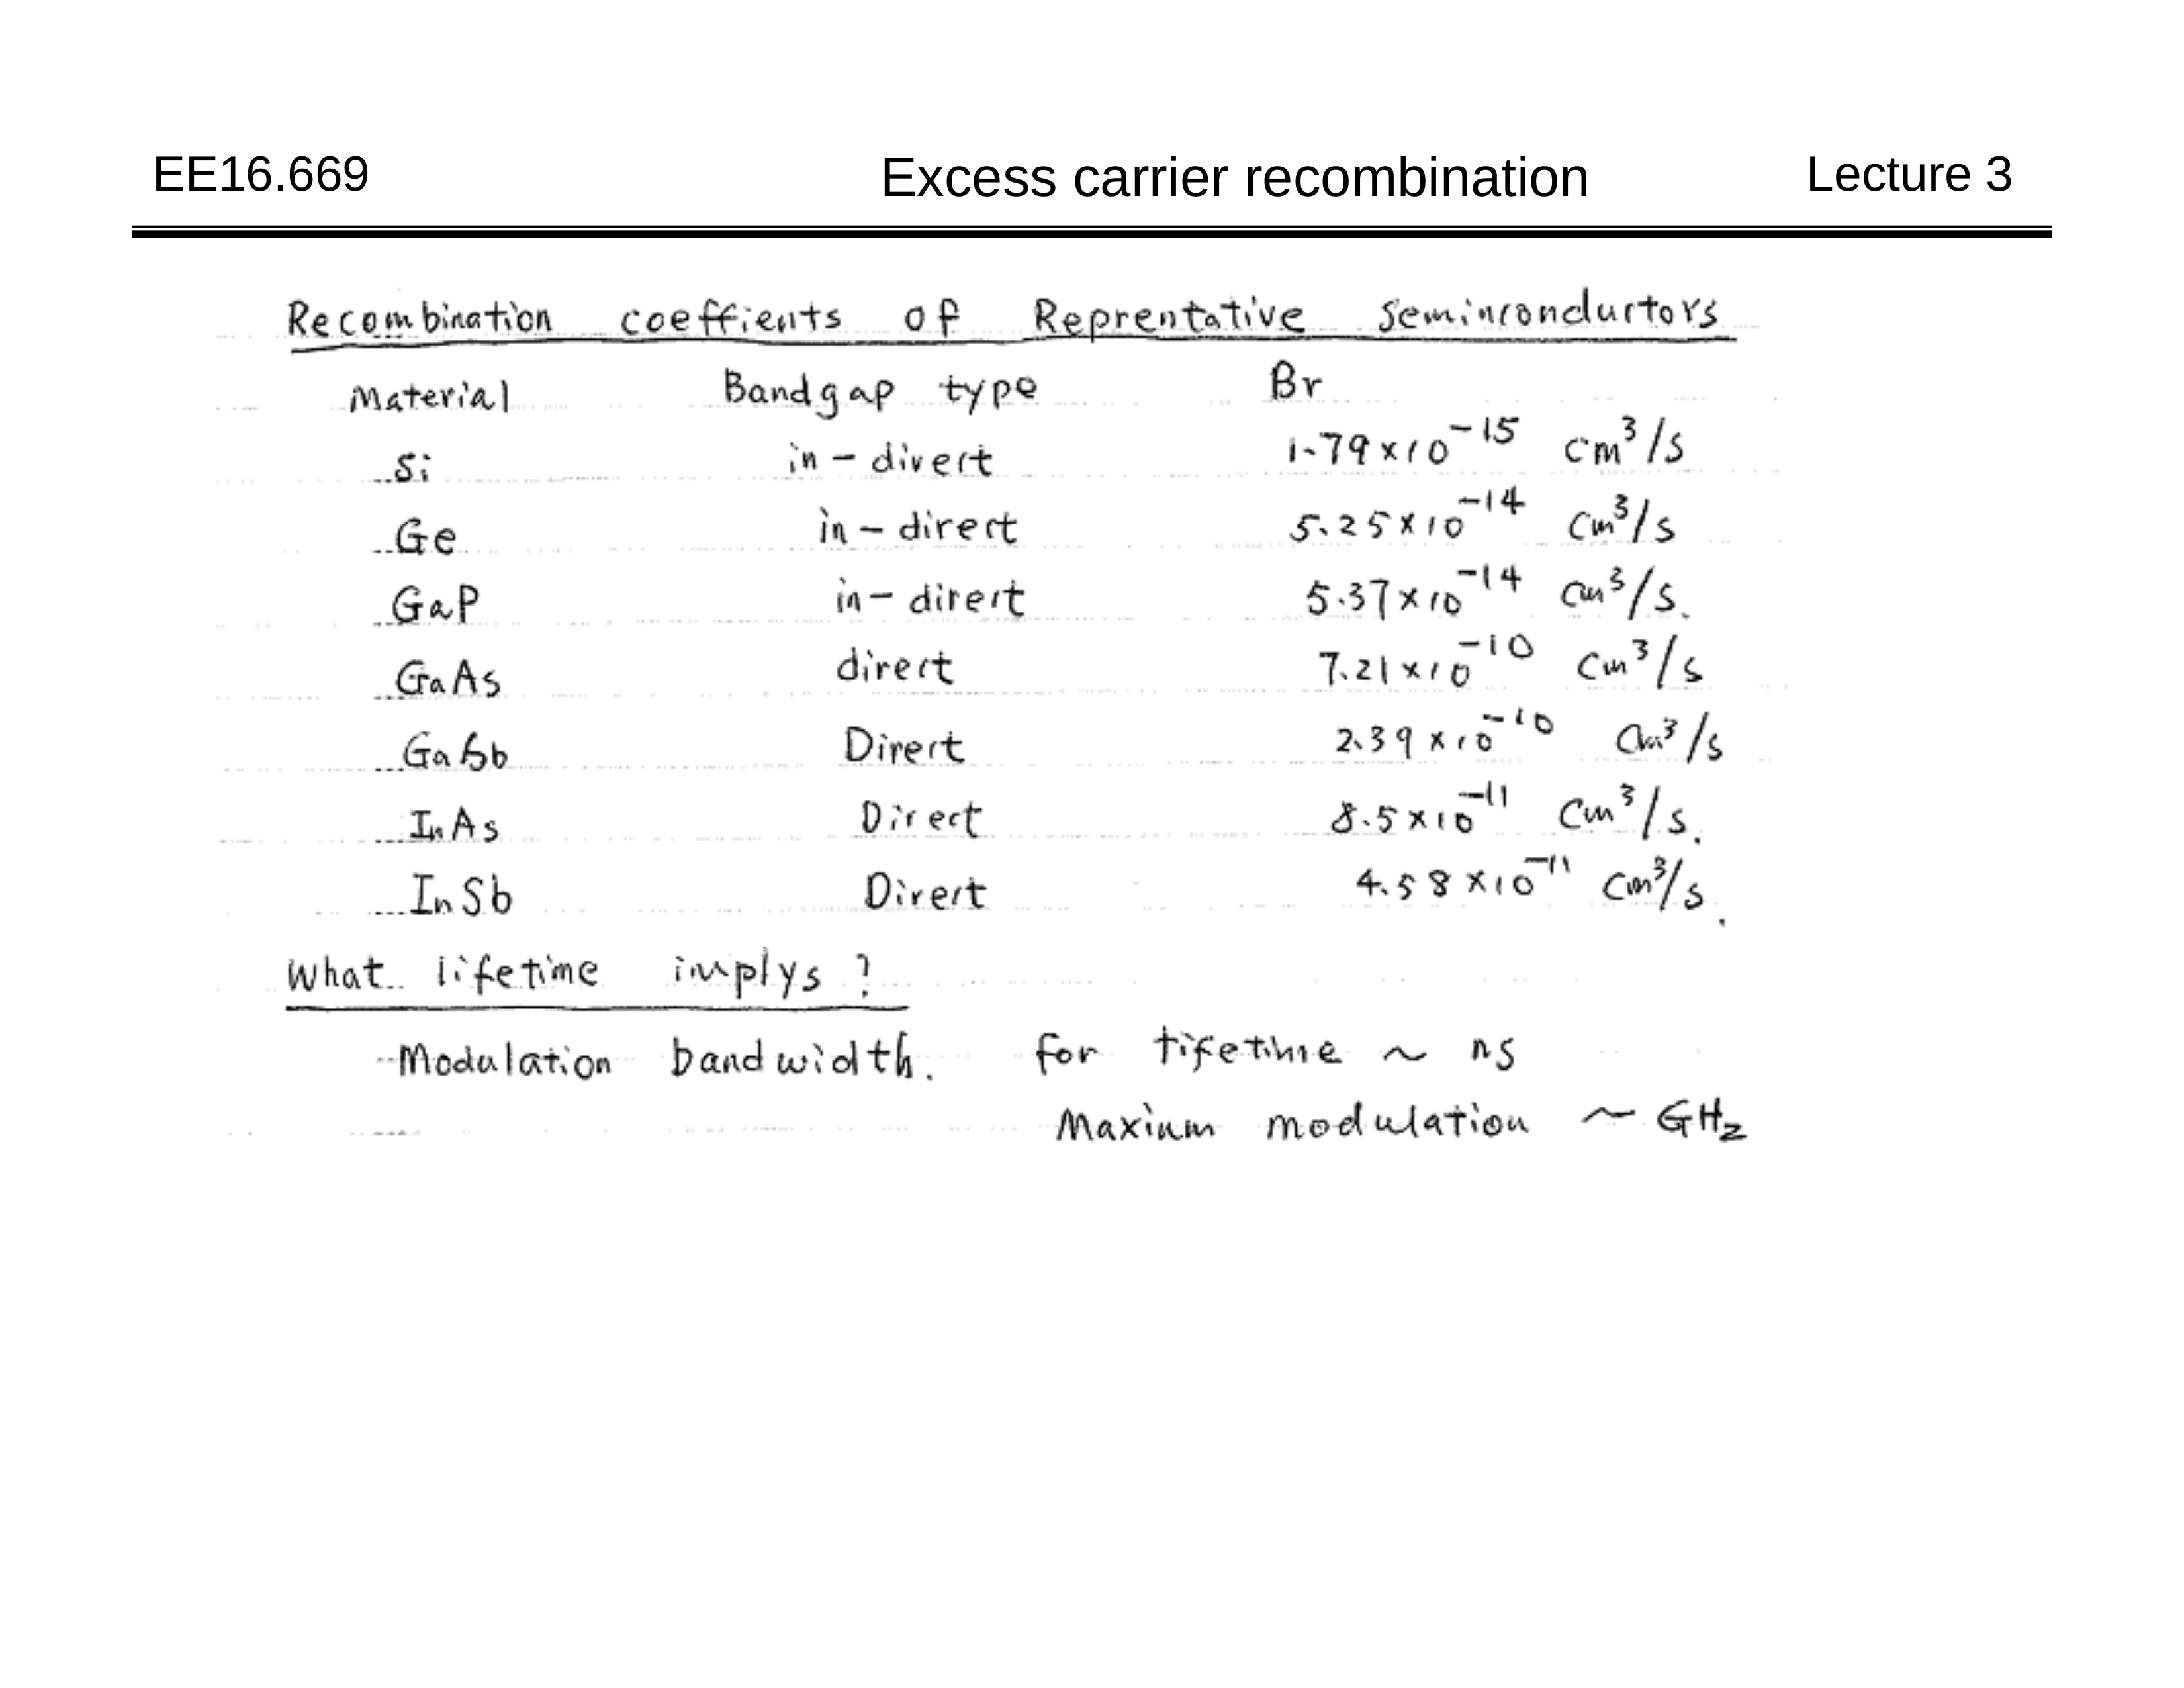 EE16.669 Excess carrier recombination Lecture 3
Recombination coeffients of Reprentative seminconductors
Material Bandgap type Br
Si in-direct 1.79×10⁻¹⁵ cm³/s
Ge in-direct 5.25×10⁻¹⁴ cm³/s
GaP in-direct 5.37×10⁻¹⁴ cm³/s.
GaAs direct 7.21×10⁻¹⁰ cm³/s
GaSb Direct 2.39×10⁻¹⁰ cm³/s
InAs Direct 8.5×10⁻¹¹ cm³/s.
InSb Direct 4.58×10⁻¹¹ cm³/s.
What lifetime implys ?
Modulation bandwidth. for lifetime ~ ns
Maxium modulation ~ GHz